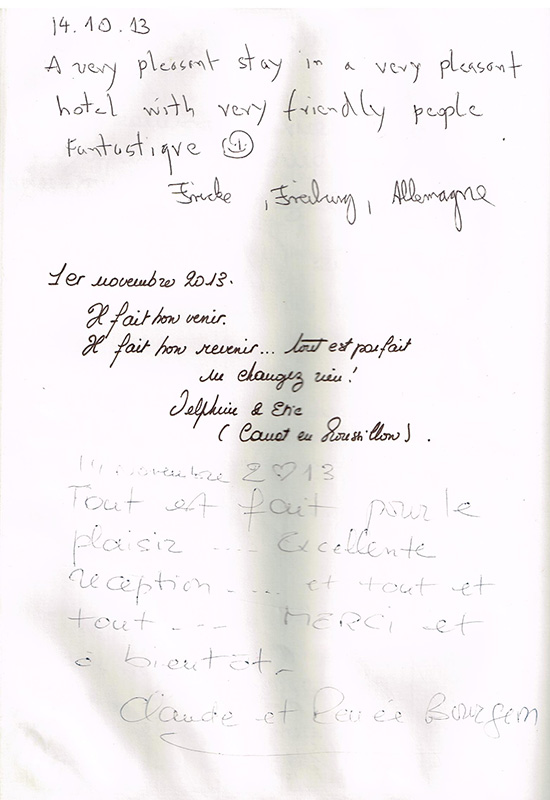 14.10.13
A very pleasant stay in a very pleasant
hotel with very friendly people
Fantastique
Fricke, Freiburg, Allemagne
1er novembre 2013.
Il fait bon venir.
Il fait bon revenir... tout est parfait
ne changez rien!
Delphine & Eric
(Canet en Roussillon).
14 novembre 2013
Tout est fait pour le
plaisir .... Excellente
reception .... et tout et
tout --- MERCI et
à bientôt.
Claude et Renée